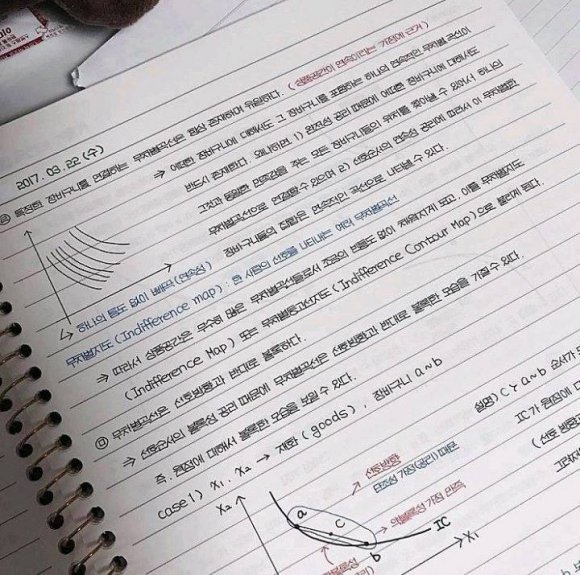 2017. 03. 22 (수)
특정한 장바구니를 연결하는 무차별곡선은 항상 존재하며 유일하다. (상품공간이 연속이라는 가정에 근거)
→ 어떠한 장바구니에 대해서도 그 장바구니를 포함하는 하나의 연속적인 무차별 곡선이
반드시 존재한다. 왜냐하면, 1) 완전성 공리 때문에 어떠한 장바구니에 대해서도
그것과 동일한 만족감을 주는 모든 장바구니들의 위치를 찾아낼 수 있어서 하나의
무차별곡선으로 연결할 수 있으며 2) 선호순서의 연속성 공리에 따라서 이 무차별한
장바구니들의 집합은 연속적인 곡선으로 나타낼 수 있다.
↳ 하나의 틈도 없이 빽빽(연속성)
무차별지도 (Indifference map) : 한 사람의 선호를 나타내는 여러 무차별곡선
→ 따라서 상품공간은 무수히 많은 무차별곡선들로서 조금의 빈틈도 없이 채워지게 되고, 이를 무차별지도
(Indifference Map) 또는 무차별등고선지도 (Indifference Contour Map)으로 불리게 된다.
무차별곡선은 선호방향과 반대로 볼록하다.
→ 선호순서의 볼록성 공리 때문에 무차별곡선은 선호방향과 반대로 볼록한 모습을 가질 수 있다.
즉, 원점에 대해서 볼록한 모습을 보일 수 있다.
case 1) X₁, X₂ → 재화 (goods), 장바구니 a~b
설명) C > a~b 순서가
IC가 원점에
(선호 방향
X₂
선호방향
단조성 가정(공리) 때문
a
c
b
→ 약볼록성 가정 만족
IC
X₁
볼록성